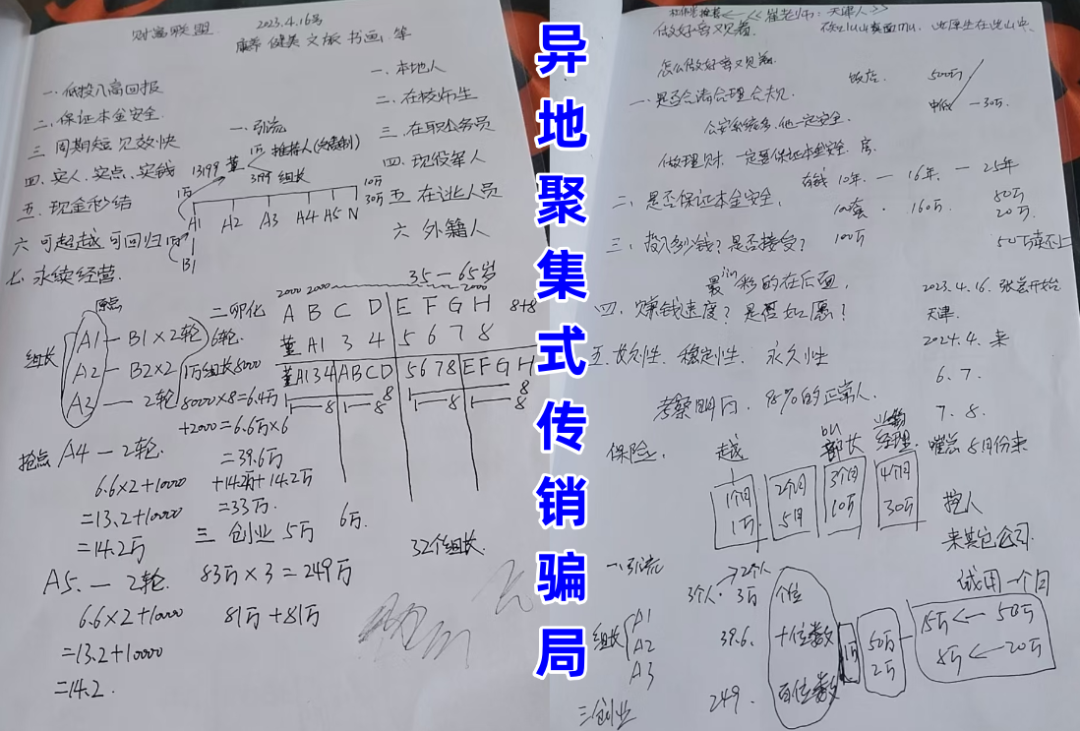 2023.4.16号
财富联盟
康养 健美 文旅 书画 等
一. 低投入高回报
二. 保证本金安全.
三 周期短 见效快
四. 实人、实点、实钱
五. 现金秒结
六 可超越 可回归
七 永续经营.
一. 本地人
二. 在校师生
三. 在职公务员
四. 现役军人
五 在逃人员
六 外籍人
35—65岁
一. 引流
1399 董
1万 推荐人
3999 组长
1万
A1 A2 A3 A4 A5 N
10万
30万
B1
原点
组长
A1 — B1×2轮
A2 — B2×2
A3 — 2轮
6轮.
1万组长8000
8000×8=6.4万
+2000=6.6万×6
=39.6万
+14.2万+14.2万
=33万.
二 卵化
2000 2000 2000 2000
A B C D E F G H 8+8
董 A1 3 4 5 6 7 8
董 A1 3 4 A B C D 5 6 7 8 E F G H
1—8 1—8 1—8 1—8
抢点 A4 — 2轮.
6.6×2+10000
=13.2+10000
=14.2万
三 创业 5万 6万.
32个组长
A5. — 2轮.
83万×3=249万
6.6×2+10000
81万+81万
=13.2+10000
=14.2.
异地聚集式传销骗局
崔老师: 天津人
一. 是否合法合理合规.
500万
中低 — 30万
做理财. 一定要保证本金安全.
10年. — 16年. — 25年
二. 是否保证本金安全.
100套. 160万. 80万
20万.
三. 投入多少钱? 是否接受?
100万
50万卖不上
最精彩的在后面.
2023.4.16. 张总开始
四. 赚钱速度? 是否如愿?
天津.
2024.4. 来
五. 安全性. 稳定性. 永久性
6.7.
考察期内. 98%的正常人.
7.8.
保险.
超越
部长
经理
5月份来
1个月
1万.
2个月
5月
3个月
10万
4个月
30万
挖人
来其它公司.
试用一个月
一. 引流
2个人
3个人. 3万
个位
组长
A1
A2
A3
39.6.
十位数
1万
50万
2万
15万 ← 50万
8万 ← 20万
三创业
249.
百位数